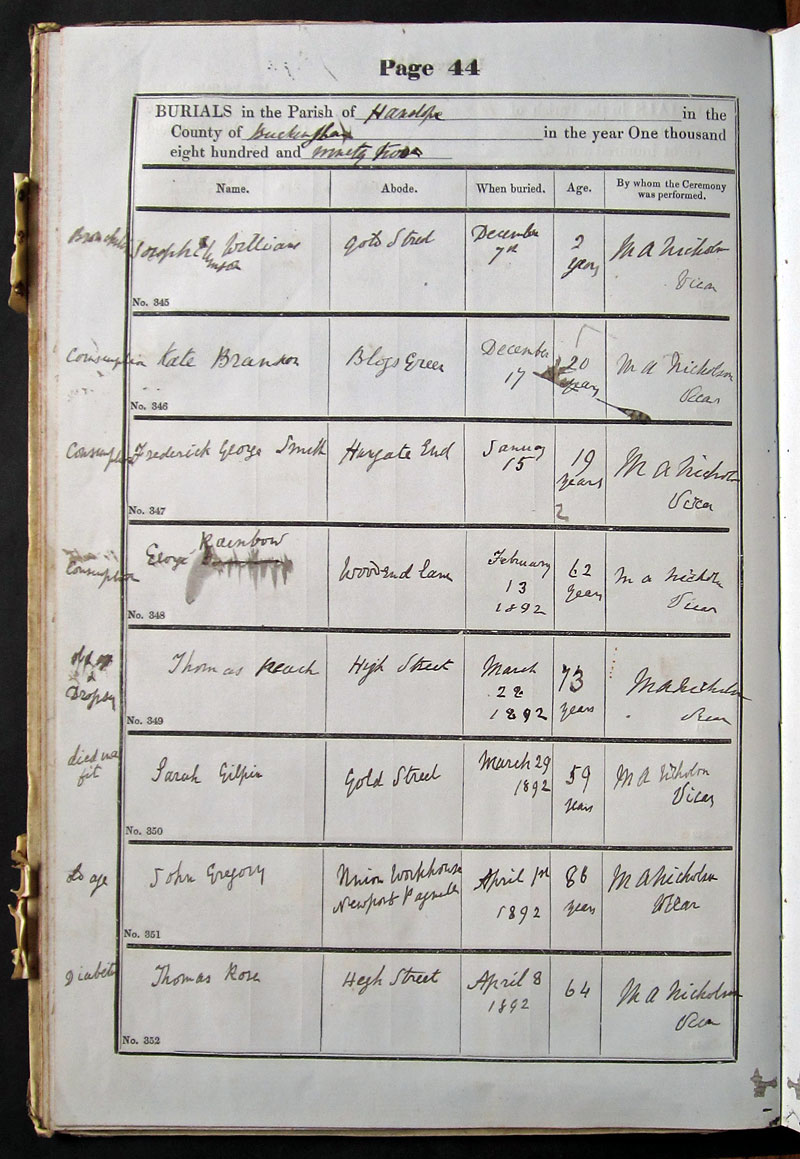 Page 44
BURIALS in the Parish of Hanslope in the
County of Buckingham in the year One thousand
eight hundred and ninety two
Name. Abode. When buried. Age. By whom the Ceremony was performed.
Bronchitis Joseph William
Gold Street
December
7th
2
years
M A Nicholson
Vicar
No. 345
Consumption Kate Branson
Green
December
17
20
years
M A Nicholson
Vicar
No. 346
Consumption Frederick George Smith
Hungate End
January
15
19
years
2
M A Nicholson
Vicar
No. 347
Consumption George Rainbow
Woodend Lane
February
13
1892
62
years
M A Nicholson
Vicar
No. 348
Dropsy
Thomas
High Street
March
22
1892
73
years
M A Nicholson
Vicar
No. 349
died in a
fit
Sarah Gilpin
Gold Street
March 29
1892
59
years
M A Nicholson
Vicar
No. 350
age
John Gregory
Union Workhouse
Newport Pagnell
April 1st
1892
86
years
M A Nicholson
Vicar
No. 351
Diabetes
Thomas Rose
High Street
April 8
1892
64
M A Nicholson
Vicar
No. 352